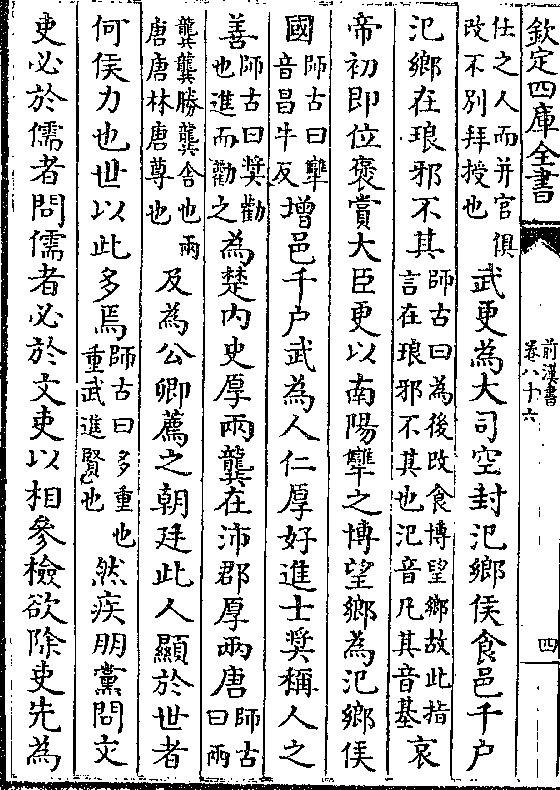 欽定四庫全書
前漢書
卷八十六
四
仕之人而并官俱
改不別拜授也
武更為大司空封氾鄉侯食邑千戶
氾鄉在琅邪不其
師古曰為後改食博望鄉故此指
言在琅邪不其也氾音凡其音基
哀
帝初即位褒賞大臣更以南陽犨之博望鄉為氾鄉侯
國
師古曰犨
音昌牛反
增邑千戶武為人仁厚好進士奬稱人之
善
師古曰奬勸
也進而勸之
為楚内史厚兩龔在沛郡厚兩唐
師古
曰兩
龔龔勝龔舍也兩
唐唐林唐尊也
及為公卿薦之朝廷此人顯於世者
何侯力也世以此多焉
師古曰多重也
重武進賢也
然疾朋黨問文
吏必於儒者問儒者必於文吏以相參檢欲除吏先為